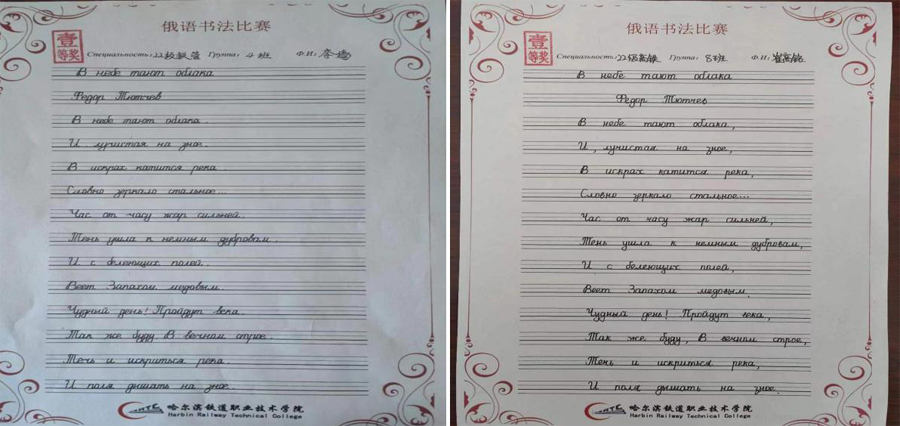 俄语书法比赛
壹
等奖
Специальность: 22级 Группа: 4班 Ф.И: 李
В небе тают облака
Федор Тютчев
В небе тают облака.
И лучистая на зное.
В искрах катится река.
Словно зеркало стальное...
Час от часу жар сильней.
Тень ушла к немным дубровам.
И с белеющих полей.
Веет Запахом медовым.
Чудный день! Пройдут века.
Так же буду В вечном строе.
Течь и искриться река.
И поля дышать на зное.
哈尔滨铁道职业技术学院
Harbin Railway Technical College
俄语书法比赛
壹
等奖
Специальность: 22级高铁 Группа: 8班 Ф.И: 崔
В небе тают облака
Федор Тютчев
В небе тают облака,
И, лучистая на зное,
В искрах катится река,
Словно зеркало стальное...
Час от часу жар сильней,
Тень ушла к немным дубровам,
И с белеющих полей,
Веет Запахом медовым.
Чудный день! Пройдут века,
Так же буду, В вечном строе,
Тень и искриться река,
И поля дышать на зное.
哈尔滨铁道职业技术学院
Harbin Railway Technical College